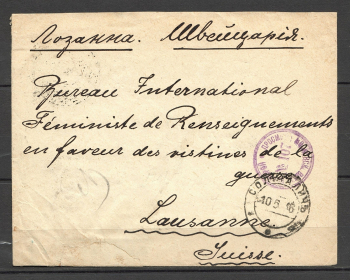 Лозанна. Швейцарія.
Bureau International
Féministe de Renseignements
en faveur des vistines de la
guerre
Lausanne.
Suisse.
СОЛИГАЛИЧЪ
10 5 16